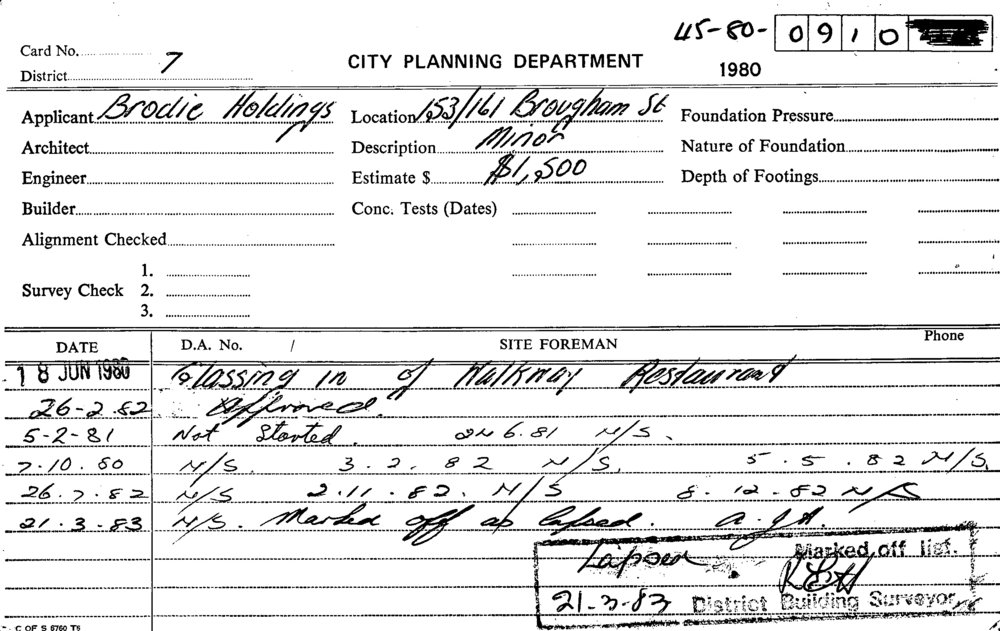 45-80- 0910
Card No. 7
CITY PLANNING DEPARTMENT
District
1980
Applicant Brodie Holdings Location 153/161 Brougham St Foundation Pressure
Architect Description Minor Nature of Foundation
Engineer Estimate $ $1,500 Depth of Footings
Builder Conc. Tests (Dates)
Alignment Checked
1.
Survey Check 2.
3.
DATE D.A. No. / SITE FOREMAN Phone
18 JUN 1980 Glassing in of Walkway Restaurant
26-2.82 Approved.
5-2-81 Not Started. 24 6.81 N/S.
7.10.80 N/S. 3.2.82 N/S. 5.5.82 N/S.
26.7.82 N/S 2.11.82. N/S 8.12.82 N/S
21.3.83 N/S. Marked off as lapsed. A.J.A.
Lapsed Marked off list.
21-3-83 District Building Surveyor
C OF S 6760 T6